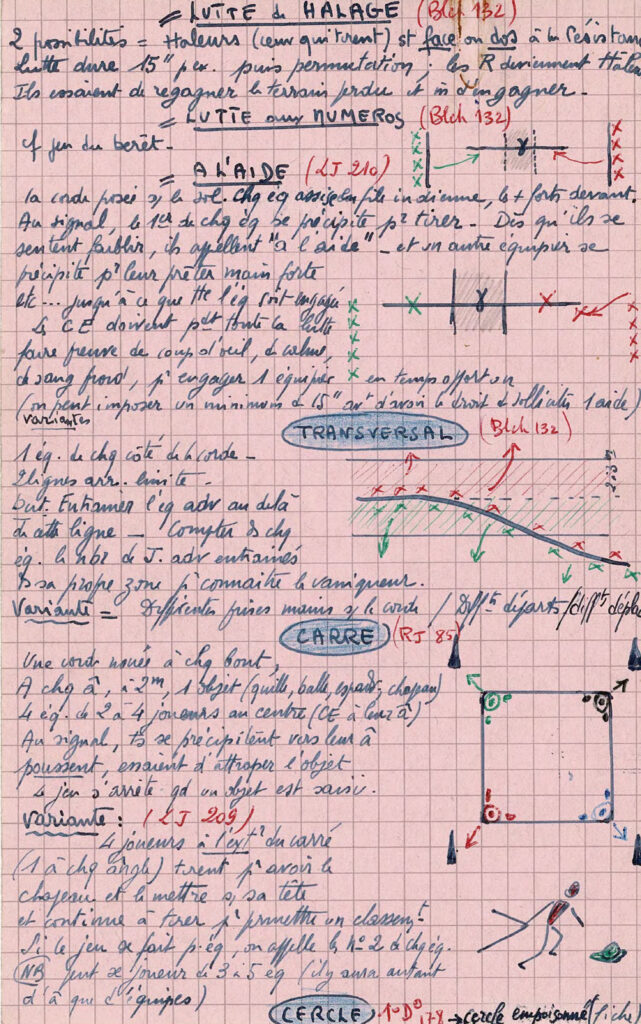 = LUTTE de HALAGE (Blch 132)
2 possibilités = Haleurs (ceux qui tirent) st face ou dos à la résistan
Lutte dure 15" p ex. puis permutation ; les R deviennent Hale
Ils essaient de regagner le terrain perdu et m̂ d'en gagner -
= LUTTE aux NUMEROS (Blch 132)
cf jeu du béret -
= A L'AIDE (LJ 210)
la corde posée s/ le sol. chq éq assise en file indienne, les + forts devant.
Au signal, le 1er de chq éq se précipite pr tirer - Dès qu'ils se
sentent faiblir, ils appellent "à l'aide" - et un autre équipier se
précipite pr leur prêter main forte
etc... jusqu'à ce que tte l'éq soit engagée
Les CE doivent pdt toute la lutte
faire preuve de coup d'oeil, de calme,
de sang froid, pr engager 1 équipier en temps opportun
(on peut imposer un minimum de 15" avt d'avoir le droit de solliciter 1 aide)
variantes
TRANSVERSAL (Blch 132)
1 éq. de chq côté de la corde -
2 lignes arr. limite -
but. Entrainer l'éq adv au delà
de cette ligne - Compter ds chq
éq. le nbre de J. adv entrainés
ds sa propre zone pr connaitre le vainqueur.
Variante = Différentes prises mains s/ la corde / Difftˢ départs / difftˢ dépla
CARRE (RJ 85)
Une corde nouée à chq bout,
A chq â, à 2m, 1 objet (quille, balle, chapeau)
4 éq. de 2 à 4 joueurs au centre (CE à leur â)
Au signal, ts se précipitent vers leur â
poussent, essaient d'attraper l'objet
Le jeu s'arrête qd un objet est saisi.
Variante : (LJ 209)
4 joueurs à l'extr du carré
(1 à chq angle) tirent pr avoir le
chapeau et le mettre s/ sa tête
et continue à tirer pr permettre un classemt
Si le jeu se fait p. éq, on appelle le no 2 de chq éq.
(NB) peut se jouer de 3 à 5 éq (il y aura autant
d'â que d'équipes)
CERCLE 178 → cercle empoisonné (fiche)